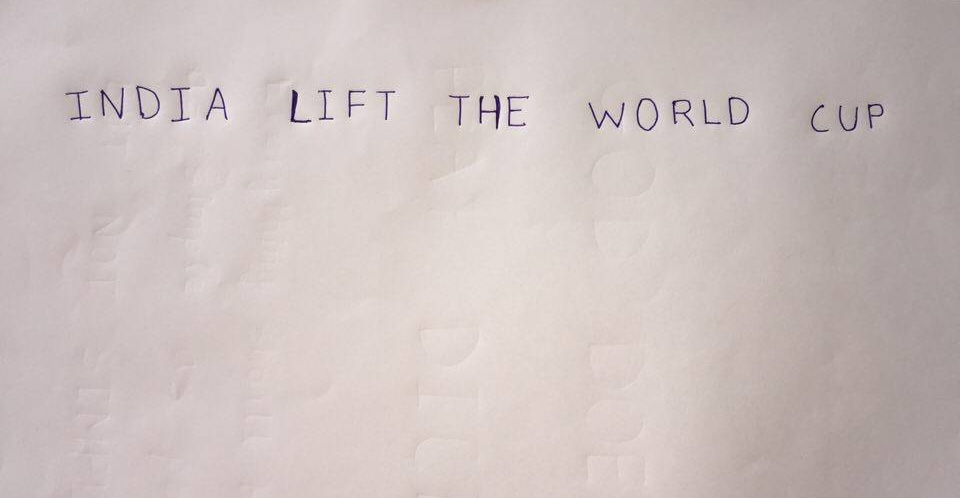 INDIA LIFT THE WORLD CUP